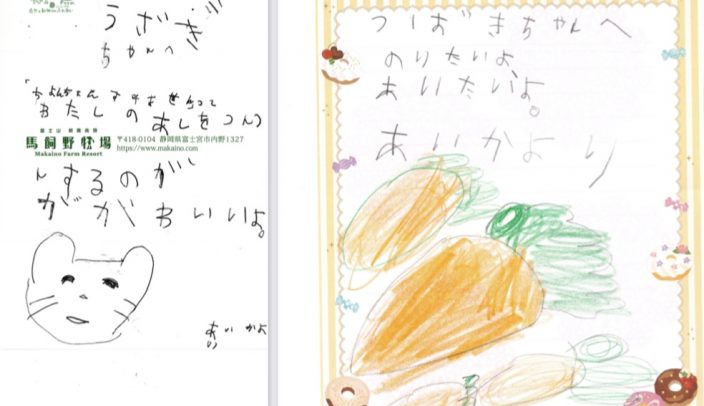 うさぎ
ちゃんへ
わたしの あしをつん
富士山 朝霧高原
馬飼野牧場
Makaino Farm Resort
〒418-0104 静岡県富士宮市内野1327
https://www.makaino.com
するのが
がかわいいよ。
あいかよ
り
つばきちゃんへ
のりたいよ、
あいたいよ。
あいかより